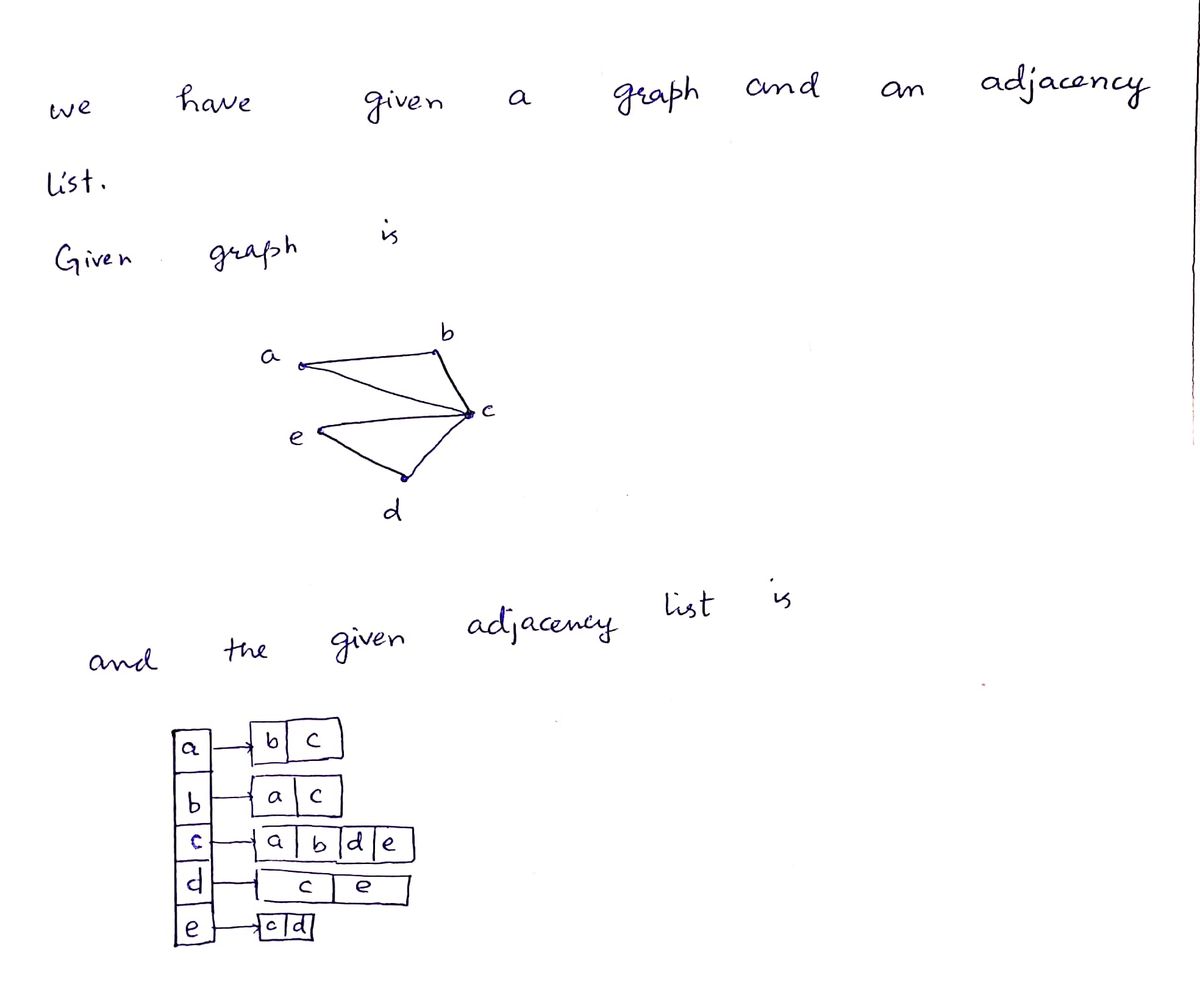 we have given a graph and an adjacency
list.
Given graph is
b
a
c
e
d
and the given adjacency list is
a b c
b a c
c a b d e
d c e
e c d